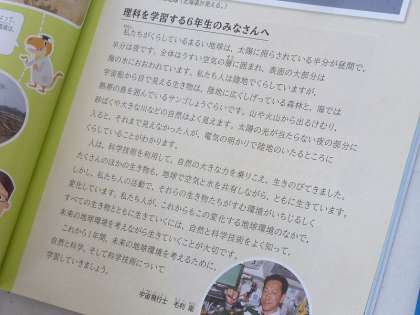 理科を学習する6年生のみなさんへ
私たちがくらしているまるい地球は、太陽に照らされている半分が昼間で、
半分は夜です。全体はうすい空気の層に囲まれ、表面の大部分は
海の水におおわれています。私たち人は陸地でくらしていますが、
宇宙船から目で見える生き物は、陸地に広くしげっている森林と、海では
熱帯の島を囲んでいるサンゴしょうぐらいです。山や火山から出るけむり、
砂ばくや大きな川などの自然はよく見えます。太陽の光が当たらない夜の部分に
入ると、それまで見えなかった人が、電気の明かりで陸地のいたるところに
くらしていることがわかります。
人は、科学技術を利用して、自然の大きな力を乗りこえ、生きのびてきました。
たくさんのほかの生き物も、地球で空気と水を共有しながら、ともに生きています。
しかし、私たち人の活動で、それらの生き物たちがすむ環境がいちじるしく
変化しています。私たち人が、これからもこの変化する地球環境のなかで、
すべての生き物とともに生きていくには、自然と科学技術をよく知って、
未来の地球環境を考えながら生きていくことが大切です。
これから1年間、未来の地球環境を考えるために、
自然と科学、そして科学技術について
学習していきましょう。
宇宙飛行士 毛利 衛